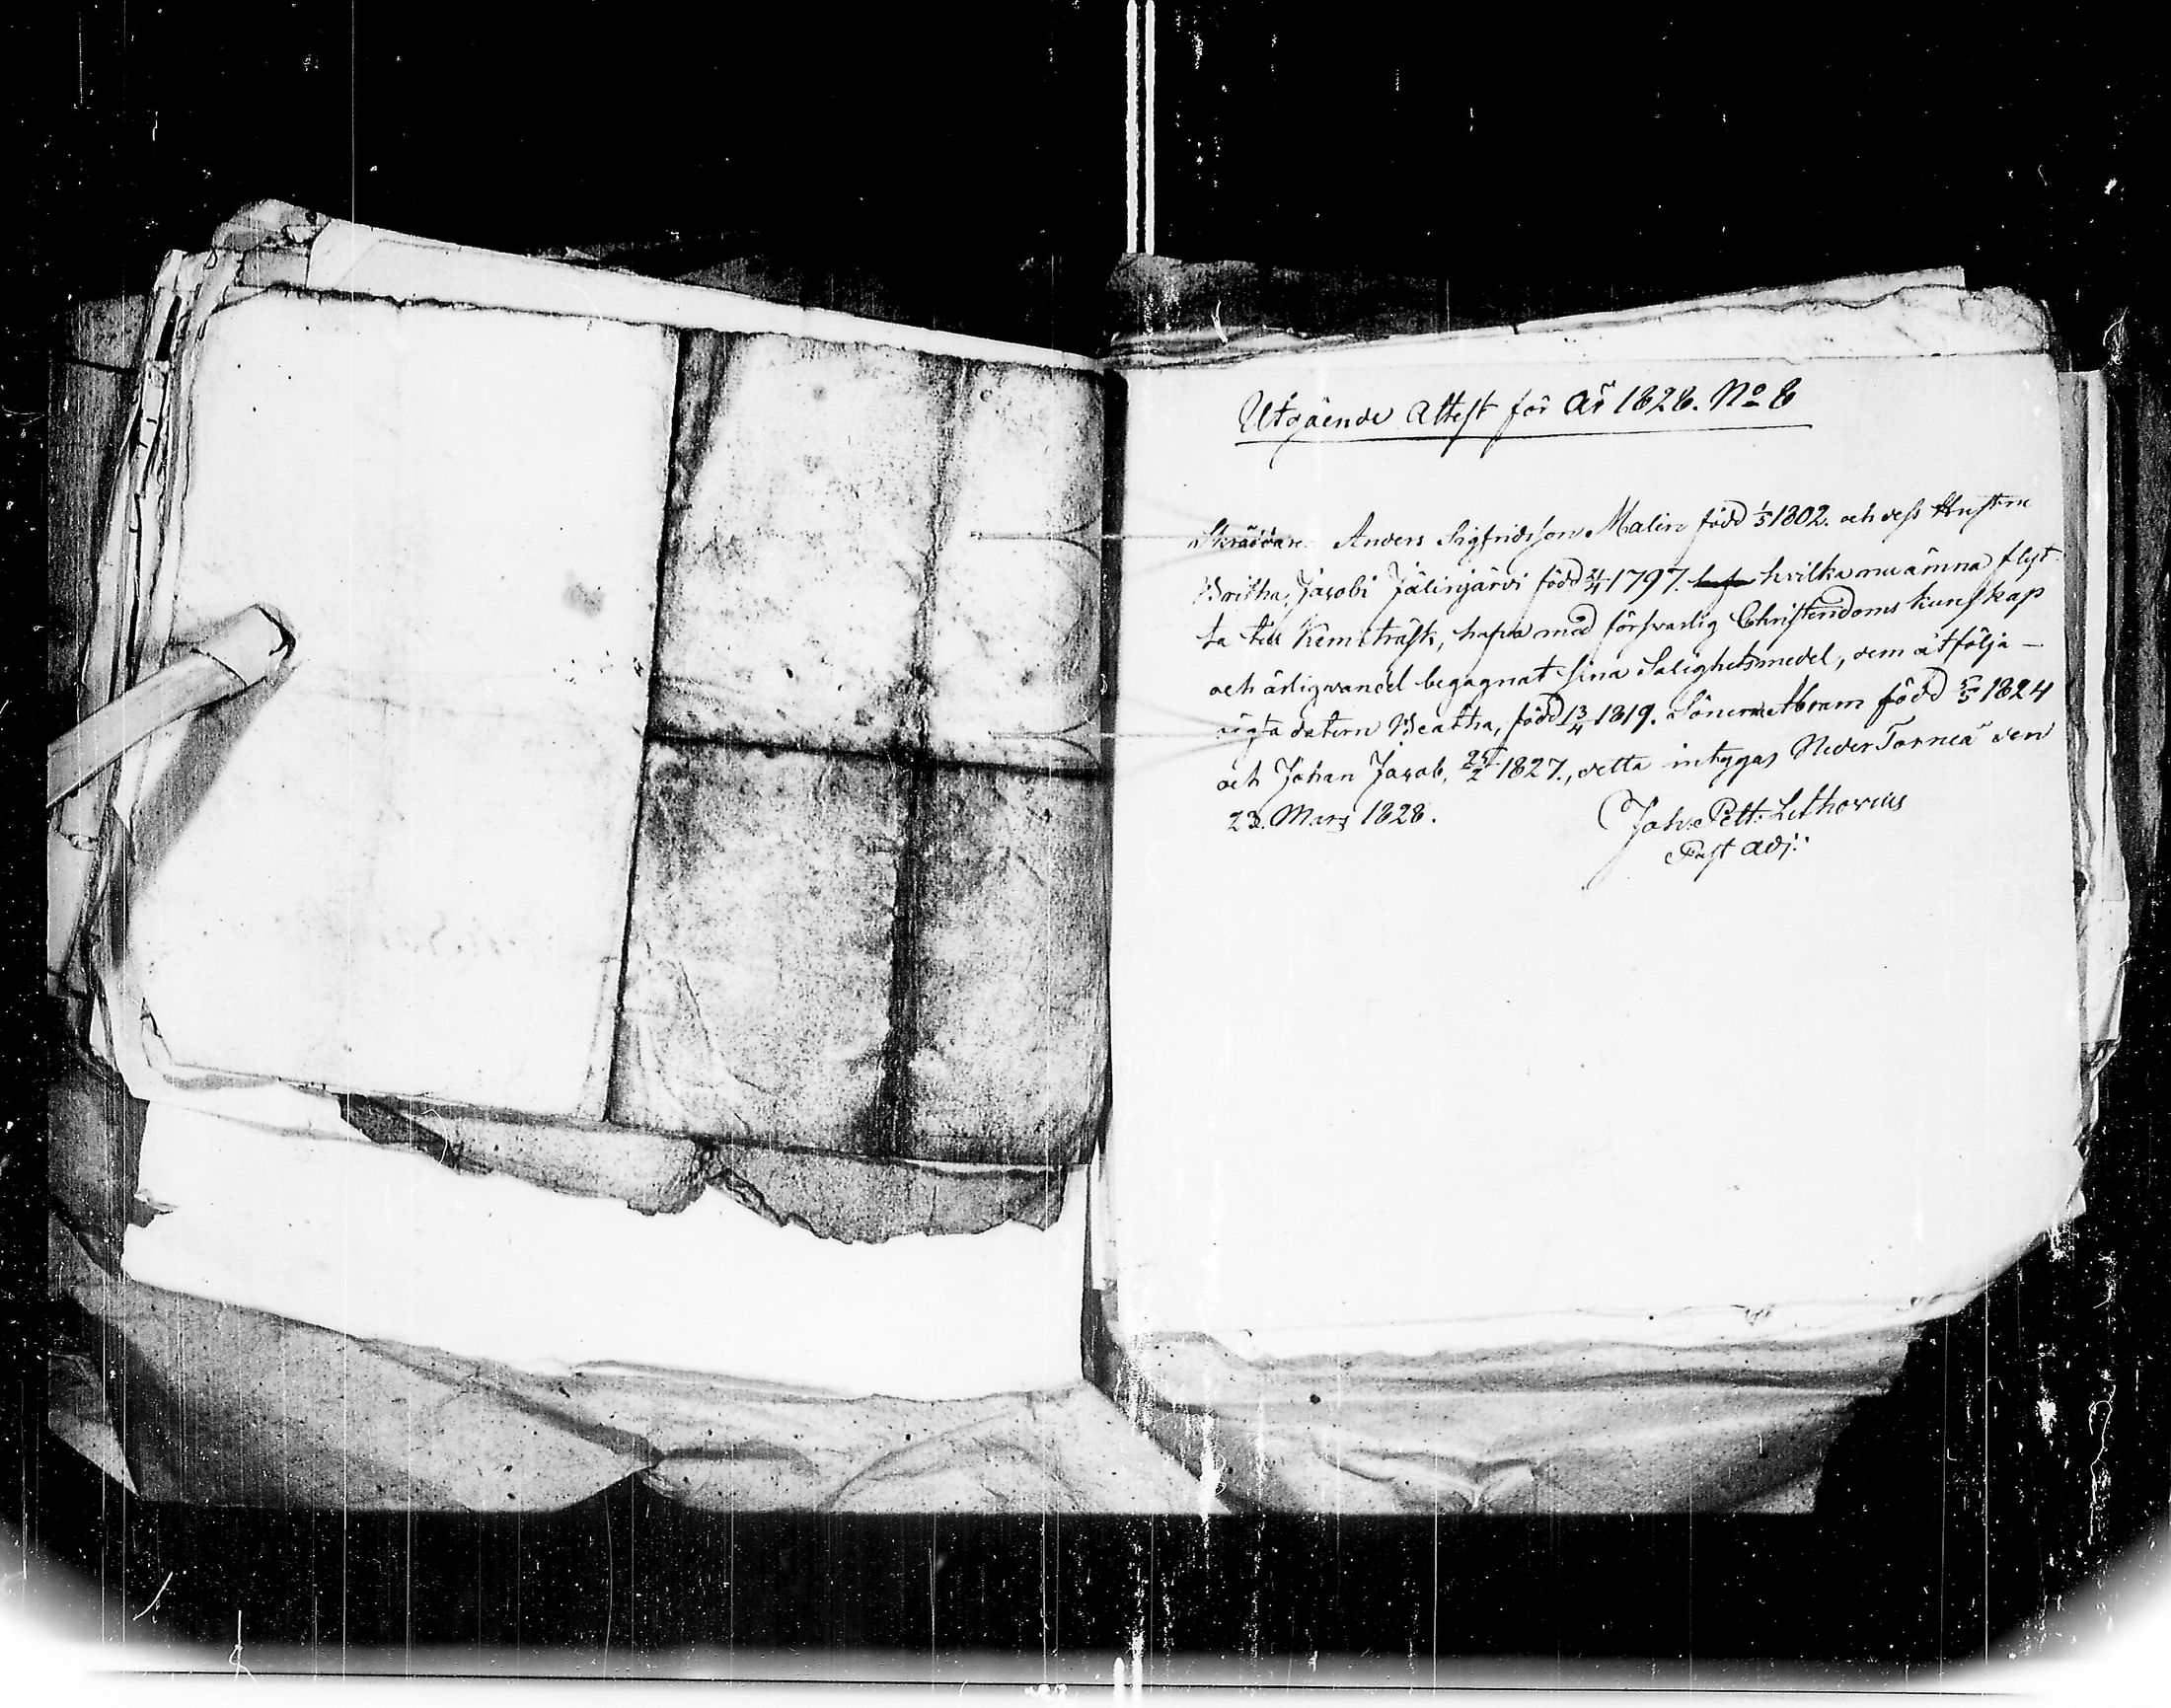 Utgående Attest för År 1828. No 8
Skräddare Anders Sigfridsson Malin född 1/5 1802. och dess Hustru
Britha Jacobi Jälinjärvi född 21/4 1797. hvilka nu ämna flyt
ta till Kemiträsk, hafva med försvarlig Christendoms kunskap
och ärlig vandel begagnat sina Salighetsmedel, dem åtfölja -
ägta dottern Beatha, född 13/4 1819. Sönerne Abram född 5/5 1824
och Johan Jacob, 25/2 1827., detta intygas Neder Torneå den
23. Mars 1828.
Joh: Pett: Lithovius
Past Adj: